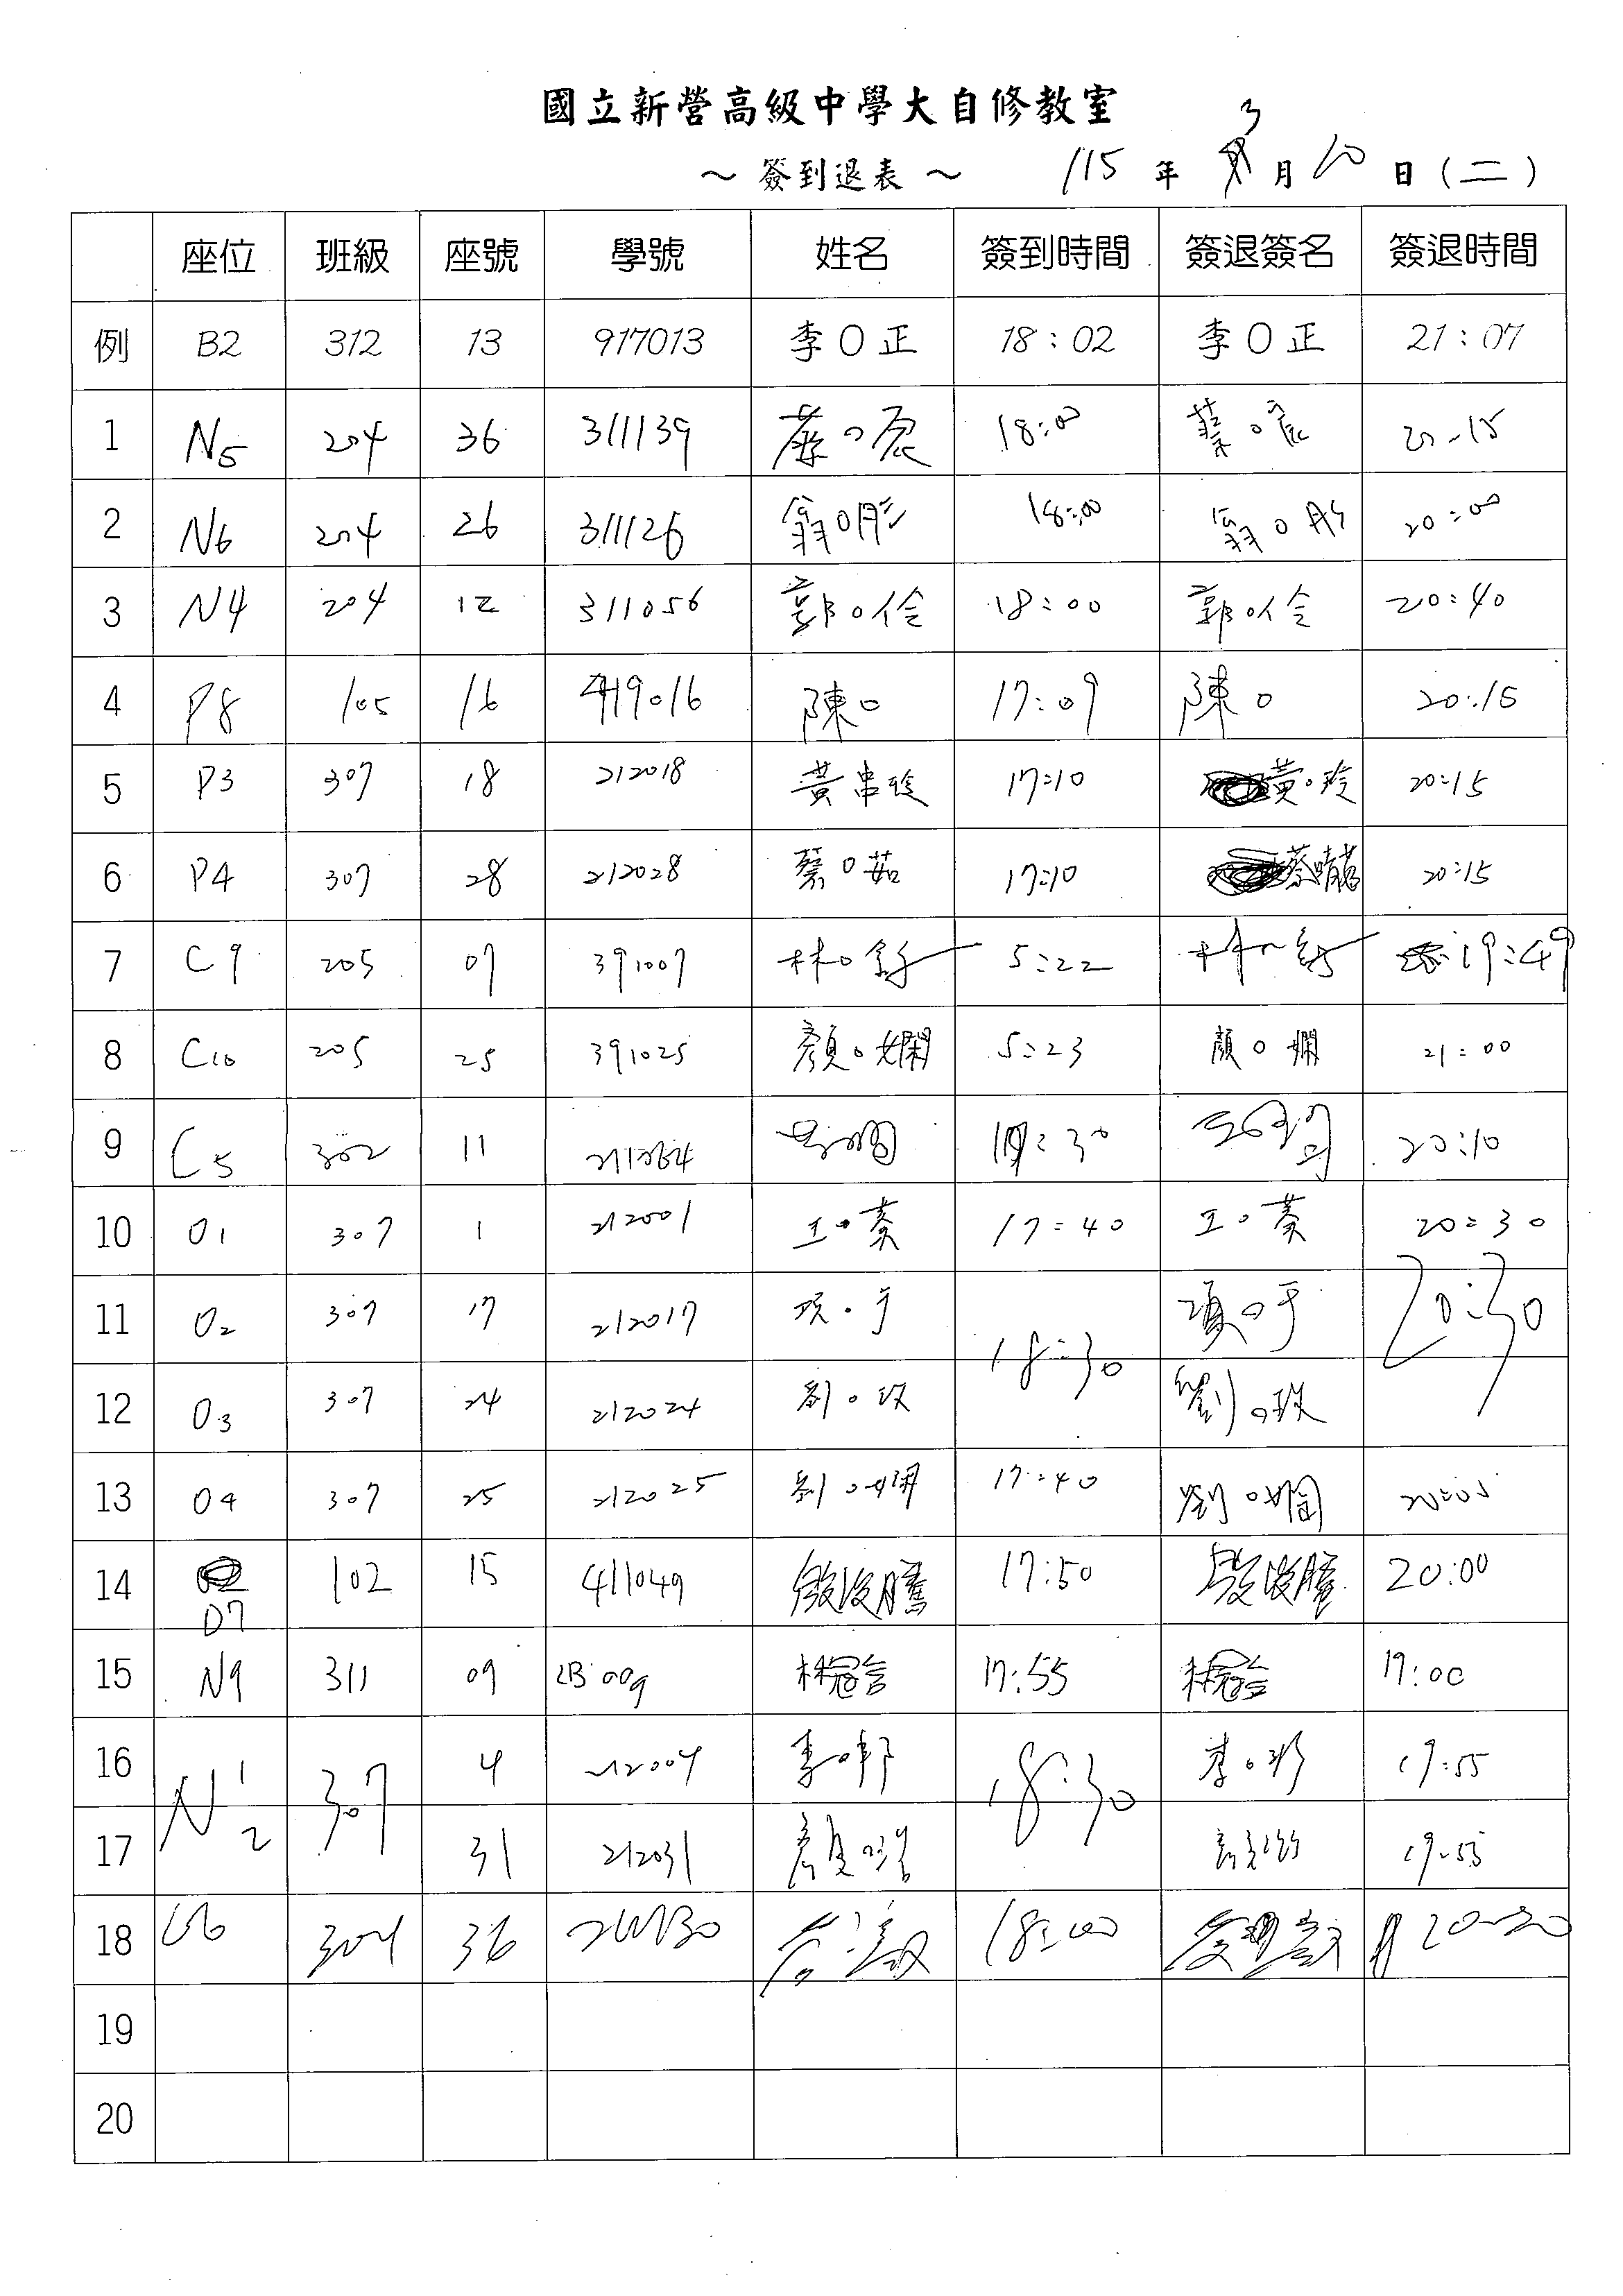 國立新營高級中學大自修教室
～簽到退表～ 115年3月10日(二)
座位 班級 座號 學號 姓名 簽到時間 簽退簽名 簽退時間
例 B2 312 13 917013 李O正 18:02 李O正 21:07
1 N5 204 36 311139 蔡O宸 18:00 蔡O宸
2 N6 204 26 311126 翁O彤 18:00 翁O彤 20:00
3 N4 204 12 311056 郭O伶 18:00 郭O伶 20:40
4 P8 105 16 419016 陳O 17:09 陳O 20:15
5 P3 307 18 212018 黃 17:10 黃O玲 20:15
6 P4 307 28 212028 蔡O茹 17:10 蔡 20:15
7 C9 205 07 391007 林O 5:22 林 19:49
8 C10 205 25 391025 顏O嫻 5:23 顏O嫻 21:00
9 C5 302 11 20:10
10 O1 307 1 212001 王O蓁 17:40 王O蓁 20:30
11 O2 307 17 212017 項O于 18:30 項O于 20:30
12 O3 307 24 212024 劉O玟 劉O玟
13 O4 307 25 212025 劉O嫻 17:40 劉O嫻 20:05
14 D7 102 15 411049 17:50 20:00
15 N9 311 09 林冠 17:55 林冠 19:00
16 N1 307 4 212004 李O 18:30 李O 19:55
17 2 31 212031 顏O 19:55
18 304 36 18:00 20:30
19
20